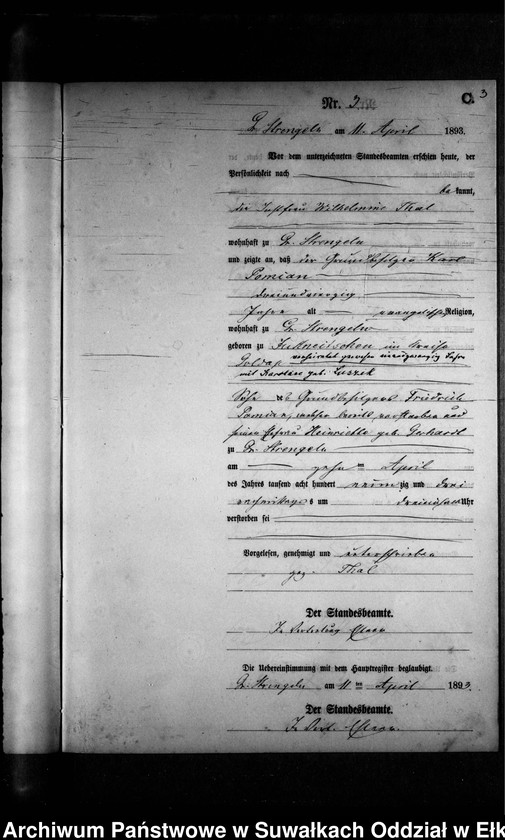 Nr. 3
C. 3
Gr. Strengeln am 11. April 1893.
Vor dem unterzeichneten Standesbeamten erschien heute, der
Persönlichkeit nach
bekannt,
die Wilhelmine Thal
wohnhaft zu Gr. Strengeln
und zeigte an, daß der Grundbesitzer Karl
Pomian
dreiundvierzig
Jahre alt evangelischer Religion,
wohnhaft zu Gr. Strengeln
geboren zu im Kreise
Goldap verheiratet gewesen Jahre
mit Karoline geb.
Sohn des Grundbesitzers Friedrich
Pomian, welcher bereits verstorben und
seiner Ehefrau Heinriette geb. Gerhardt
zu Gr. Strengeln
am zehn ten April
des Jahres tausend acht hundert neunzig und drei
nachmittags um Uhr
verstorben sei
Vorgelesen, genehmigt und unterschrieben
gez. Thal
Der Standesbeamte.
In Vertretung
Die Uebereinstimmung mit dem Hauptregister beglaubigt.
Gr. Strengeln am 11 ten April 1893.
Der Standesbeamte.
In Vertr.
Archiwum Państwowe w Suwałkach Oddział w Ełk